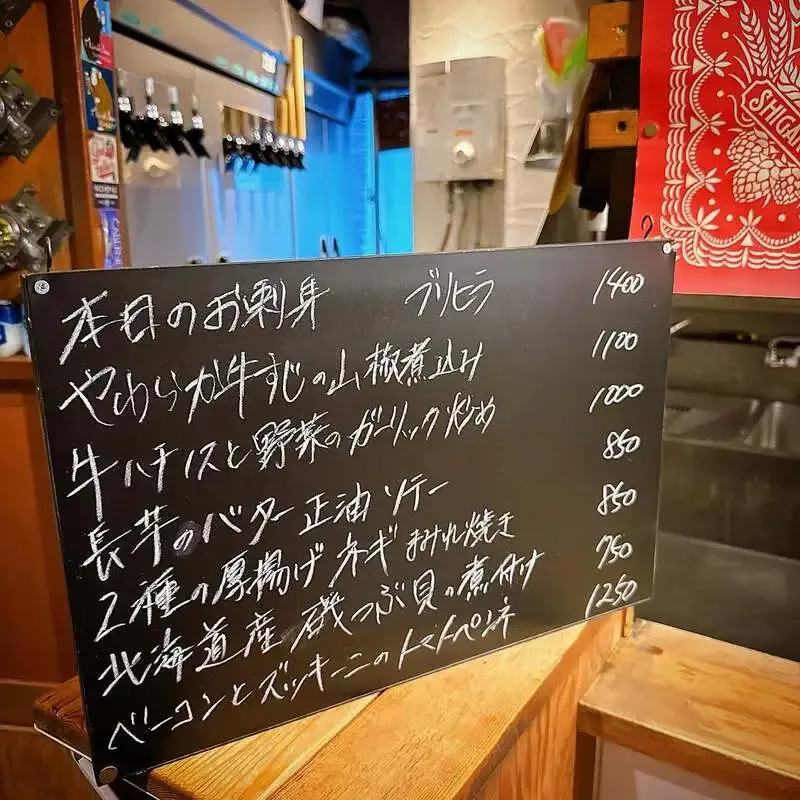 本日のお刺身 ブリヒラ 1400
やわらか牛すじの山椒煮込み 1100
牛ハチノスと野菜のガーリック炒め 1000
長芋のバター正油ソテー 850
2種の厚揚げ ネギまみれ焼き 850
北海道産 磯つぶ貝の煮付け 750
ベーコンとズッキーニのトマトペンネ 1250
SHIGA